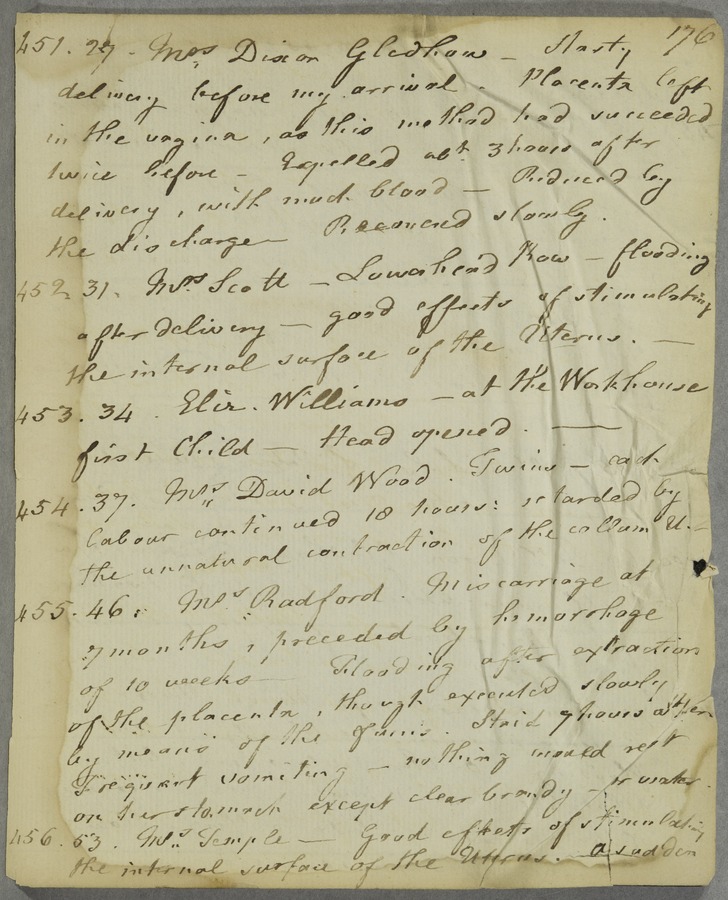 176
451. 27. Mrs Dixon Gledhow - Hasty
delivery before my arrival. Placenta left
in the vagina, as this method had succeeded
twice before - Expelled abt 3 hours after
delivery, with much blood - Reduced by
the discharge - Recovered slowly.
452. 31. Mrs Scott - Lowerhead Row - flooding
after delivery - good effects of stimulating
the internal surface of the Uterus. -
453. 34. Eliz. Williams - at the Workhouse
first Child - Head opened. -
454. 37. Mrs David Wood. Twins - each
labour continued 18 hours: retarded by
the unnatural contraction of the collum U.-
455. 46. Mrs Radford. Miscarriage at
7 months, preceded by hemorrhage
of 10 weeks - Flooding after extraction
of the placenta, though executed slowly
by means of the funis. Staid 7 hours with her
Frequent vomiting - nothing would rest
on her stomach except clear brandy or water.
456. 53. Mrs Temple - Good effects of stimulating
the internal surface of the Uterus. a sudden